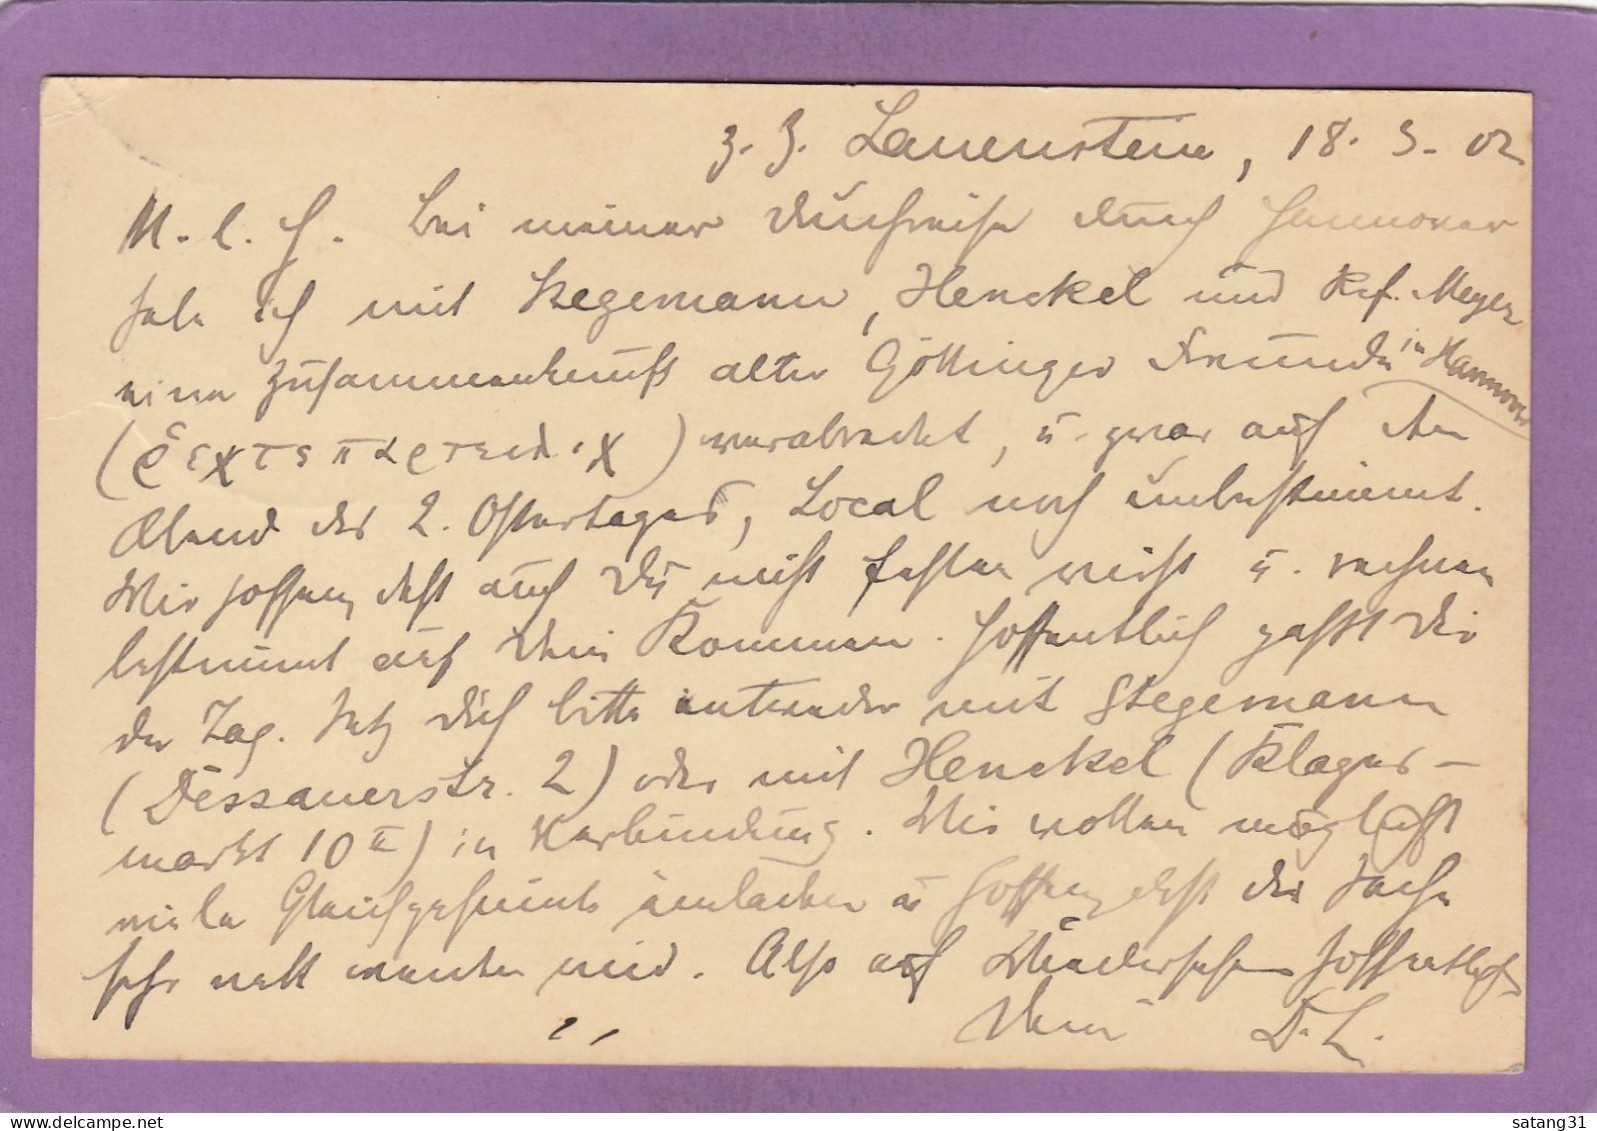 z. Z. Lauenstein, 18. 3. 02
M. l. H. Bei meiner Durchreise durch Hannover
habe ich mit Stegemann, Henckel und Ref. Meyer
eine Zusammenkunft alter Göttinger Freunde in Hannover
( ) verabredet, u. zwar auf den
Abend des 2. Ostertages, Local noch unbestimmt.
Wir hoffen, daß auch Du nicht fehlen wirst u. rechnen
bestimmt auf Dein Kommen. Hoffentlich paßt Dir
der Tag. Setz Dich bitte entweder mit Stegemann
(Dessauerstr. 2) oder mit Henckel (Klages-
markt 10 II) in Verbindung. Wir wollen möglichst
viele Gleichgesinnte einladen u. hoffen, daß die Sache
sehr nett werden wird. Also auf Wiedersehen hoffentlich
Dein D. L.
satang31